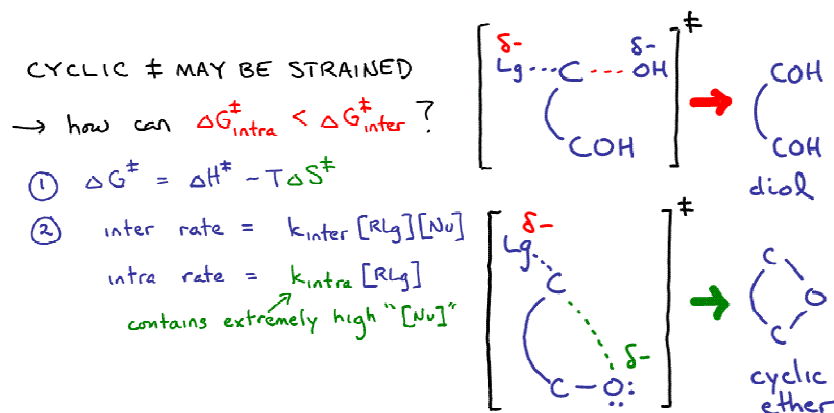 CYCLIC ‡ MAY BE STRAINED
→ how can ΔG‡intra < ΔG‡inter ?
① ΔG‡ = ΔH‡ - TΔS‡
② inter rate = kinter[RLg][Nu]
intra rate = kintra[RLg]
contains extremely high "[Nu]"
‡
δ- δ-
Lg C OH
COH
COH
COH
diol
‡
δ-
Lg
C
δ-
C-O:
C
O
C
cyclic
ether